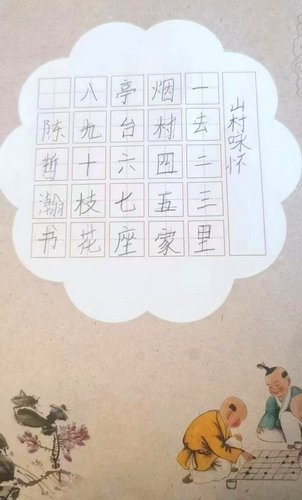 山村咏怀
一去二三里
烟村四五家
亭台六七座
八九十枝花
陈哲瀚书